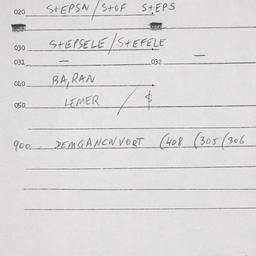 020 STEPSN / STOF STEPS
030 STEPSELE / STEFELE
031 — 032 —
040 BA, RAN
050 LEMER / $
900 DEMGANCNVORT (408 (305 / 306